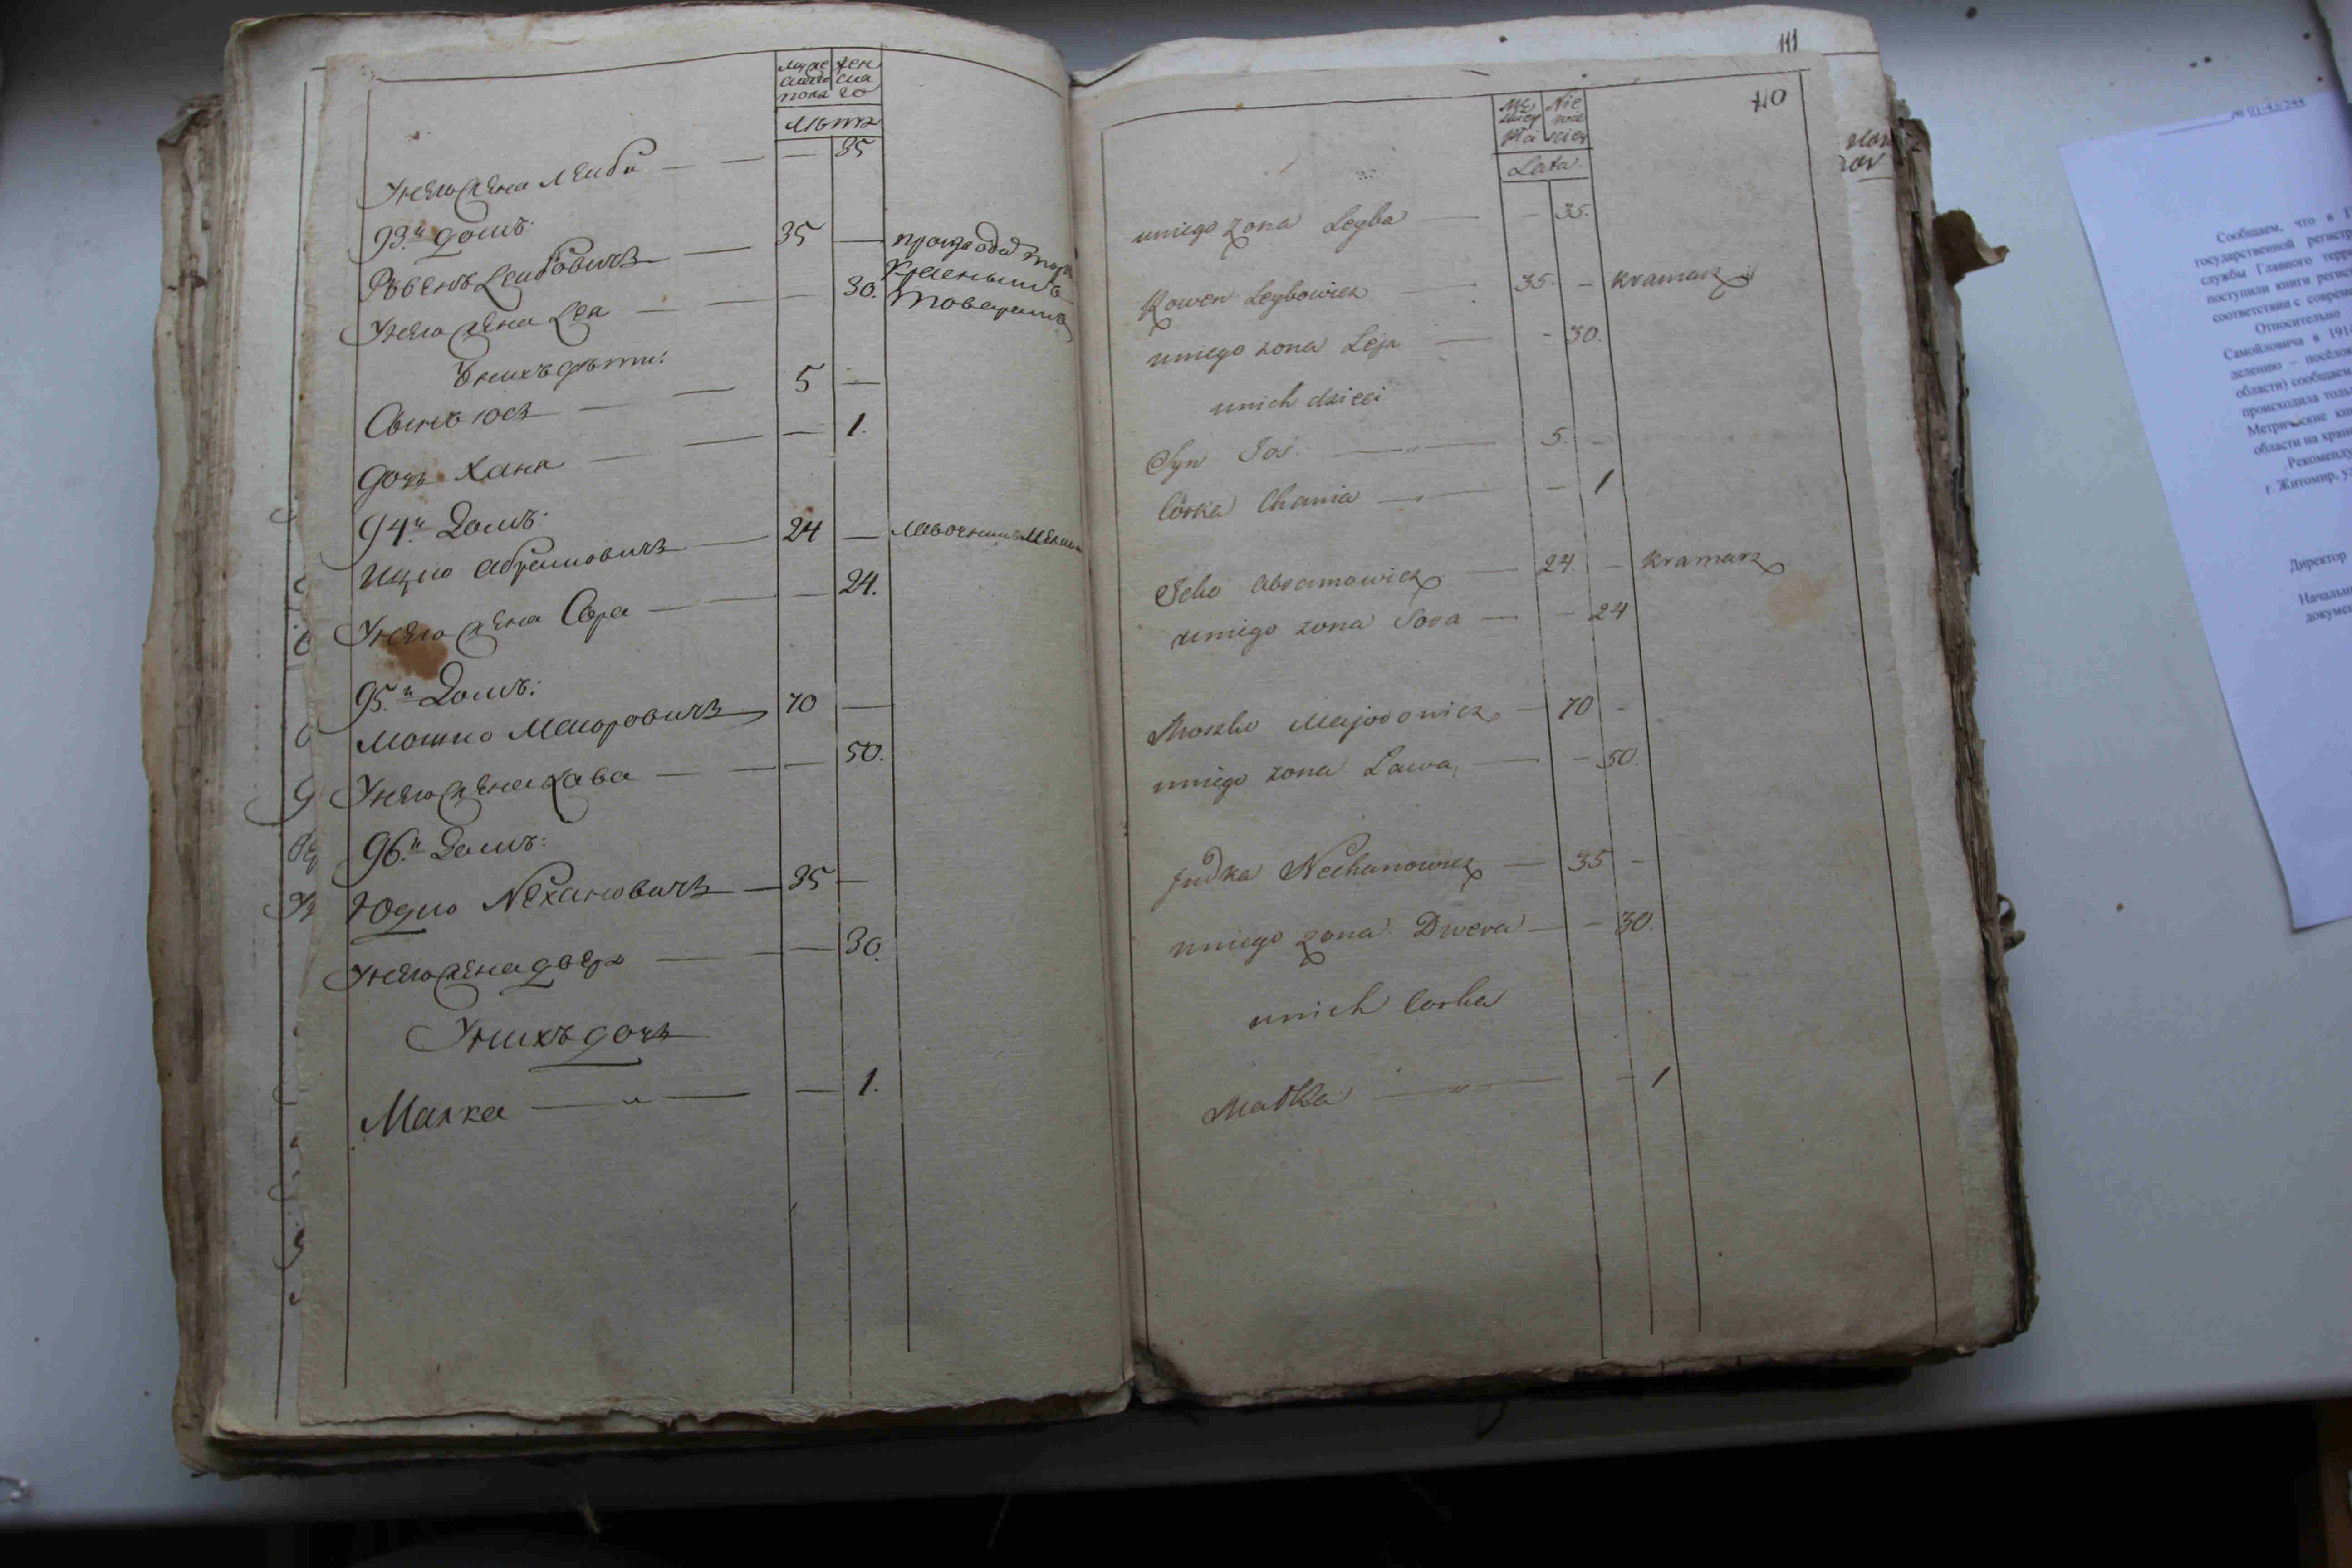 муже
ска
пола
жен
ска
го
лѣта
У него жена Леиба — — — 35
93.й домъ:
Рувенъ Леибовичъ — 35 —
У него жена Лея — — — 30.
краснымъ
товаромъ
У нихъ дѣти:
Сынъ Іось — — 5 —
дочь Хана — — — 1.
94.й Домъ:
Ицко Абрамовичъ — 24 —
У него жена Сора — — — 24.
95.й Домъ:
Мошко Маиоровичъ 70 —
У него жена Лава — — — 50.
96.й Домъ:
Юдко Нехановичъ — 35 —
У него жена двера — — 30.
У нихъ дочь
Малка — " — — 1.
111
110
Lata
uniego żona Leyba — - 35.
Rowen Leybowicz — 35. - kramarz
uniego zona Leja — - 30.
unich dzieci
Syn Jos. — 5. -
Córka Chania — - 1
Icko Abramowicz — 24. - kramarz
uniego zona Sora — - 24
Moszko Majorowicz — 70 -
uniego zona Lawa — - 50.
Judka Nechanowicz — 35 -
uniego zona Dwera — - 30.
unich Corka
Malka — " — - 1
Сообщаем, что в
государственной регистр
службы Главного терр
поступили книги регис
соответствии с соврем
Относительно
Самойловича в 191
делению – посёлок
области) сообщаем
происходила толь
Метрические кн
области на хран
Рекоменду
г. Житомир, у
Директор
Начальн
докумен